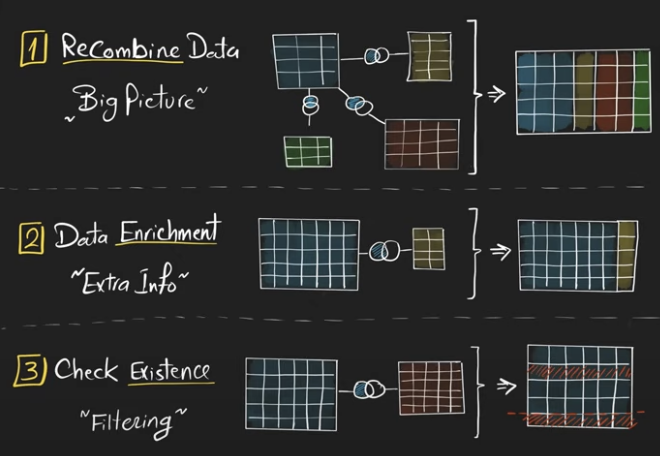 1 Recombine Data
~Big Picture~
2 Data Enrichment
~Extra Info~
3 Check Existence
~Filtering~